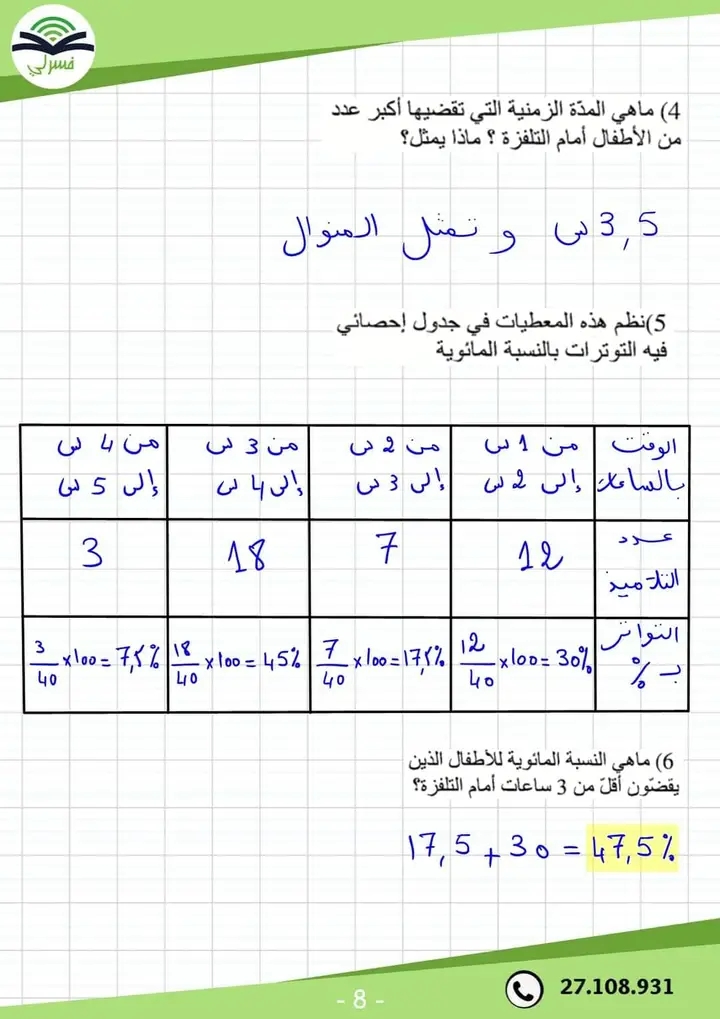 فسرلي
4) ماهي المدّة الزمنية التي تقضيها أكبر عدد
من الأطفال أمام التلفزة ؟ ماذا يمثل؟
3,5 س و تمثل المنوال
5)نظم هذه المعطيات في جدول إحصائي
فيه التوترات بالنسبة المائوية
الوقت بالساعات | من 1 س إلى 2 س | من 2 س إلى 3 س | من 3 س إلى 4 س | من 4 س إلى 5 س
عدد التلاميذ | 12 | 7 | 18 | 3
التواتر بـ % | 12/40 x100 = 30% | 7/40 x100 = 17,5% | 18/40 x100 = 45% | 3/40 x100 = 7,5%
6) ماهي النسبة المائوية للأطفال الذين
يقضّون أقلّ من 3 ساعات أمام التلفزة؟
17,5 + 30 = 47,5%
27.108.931
- 8 -